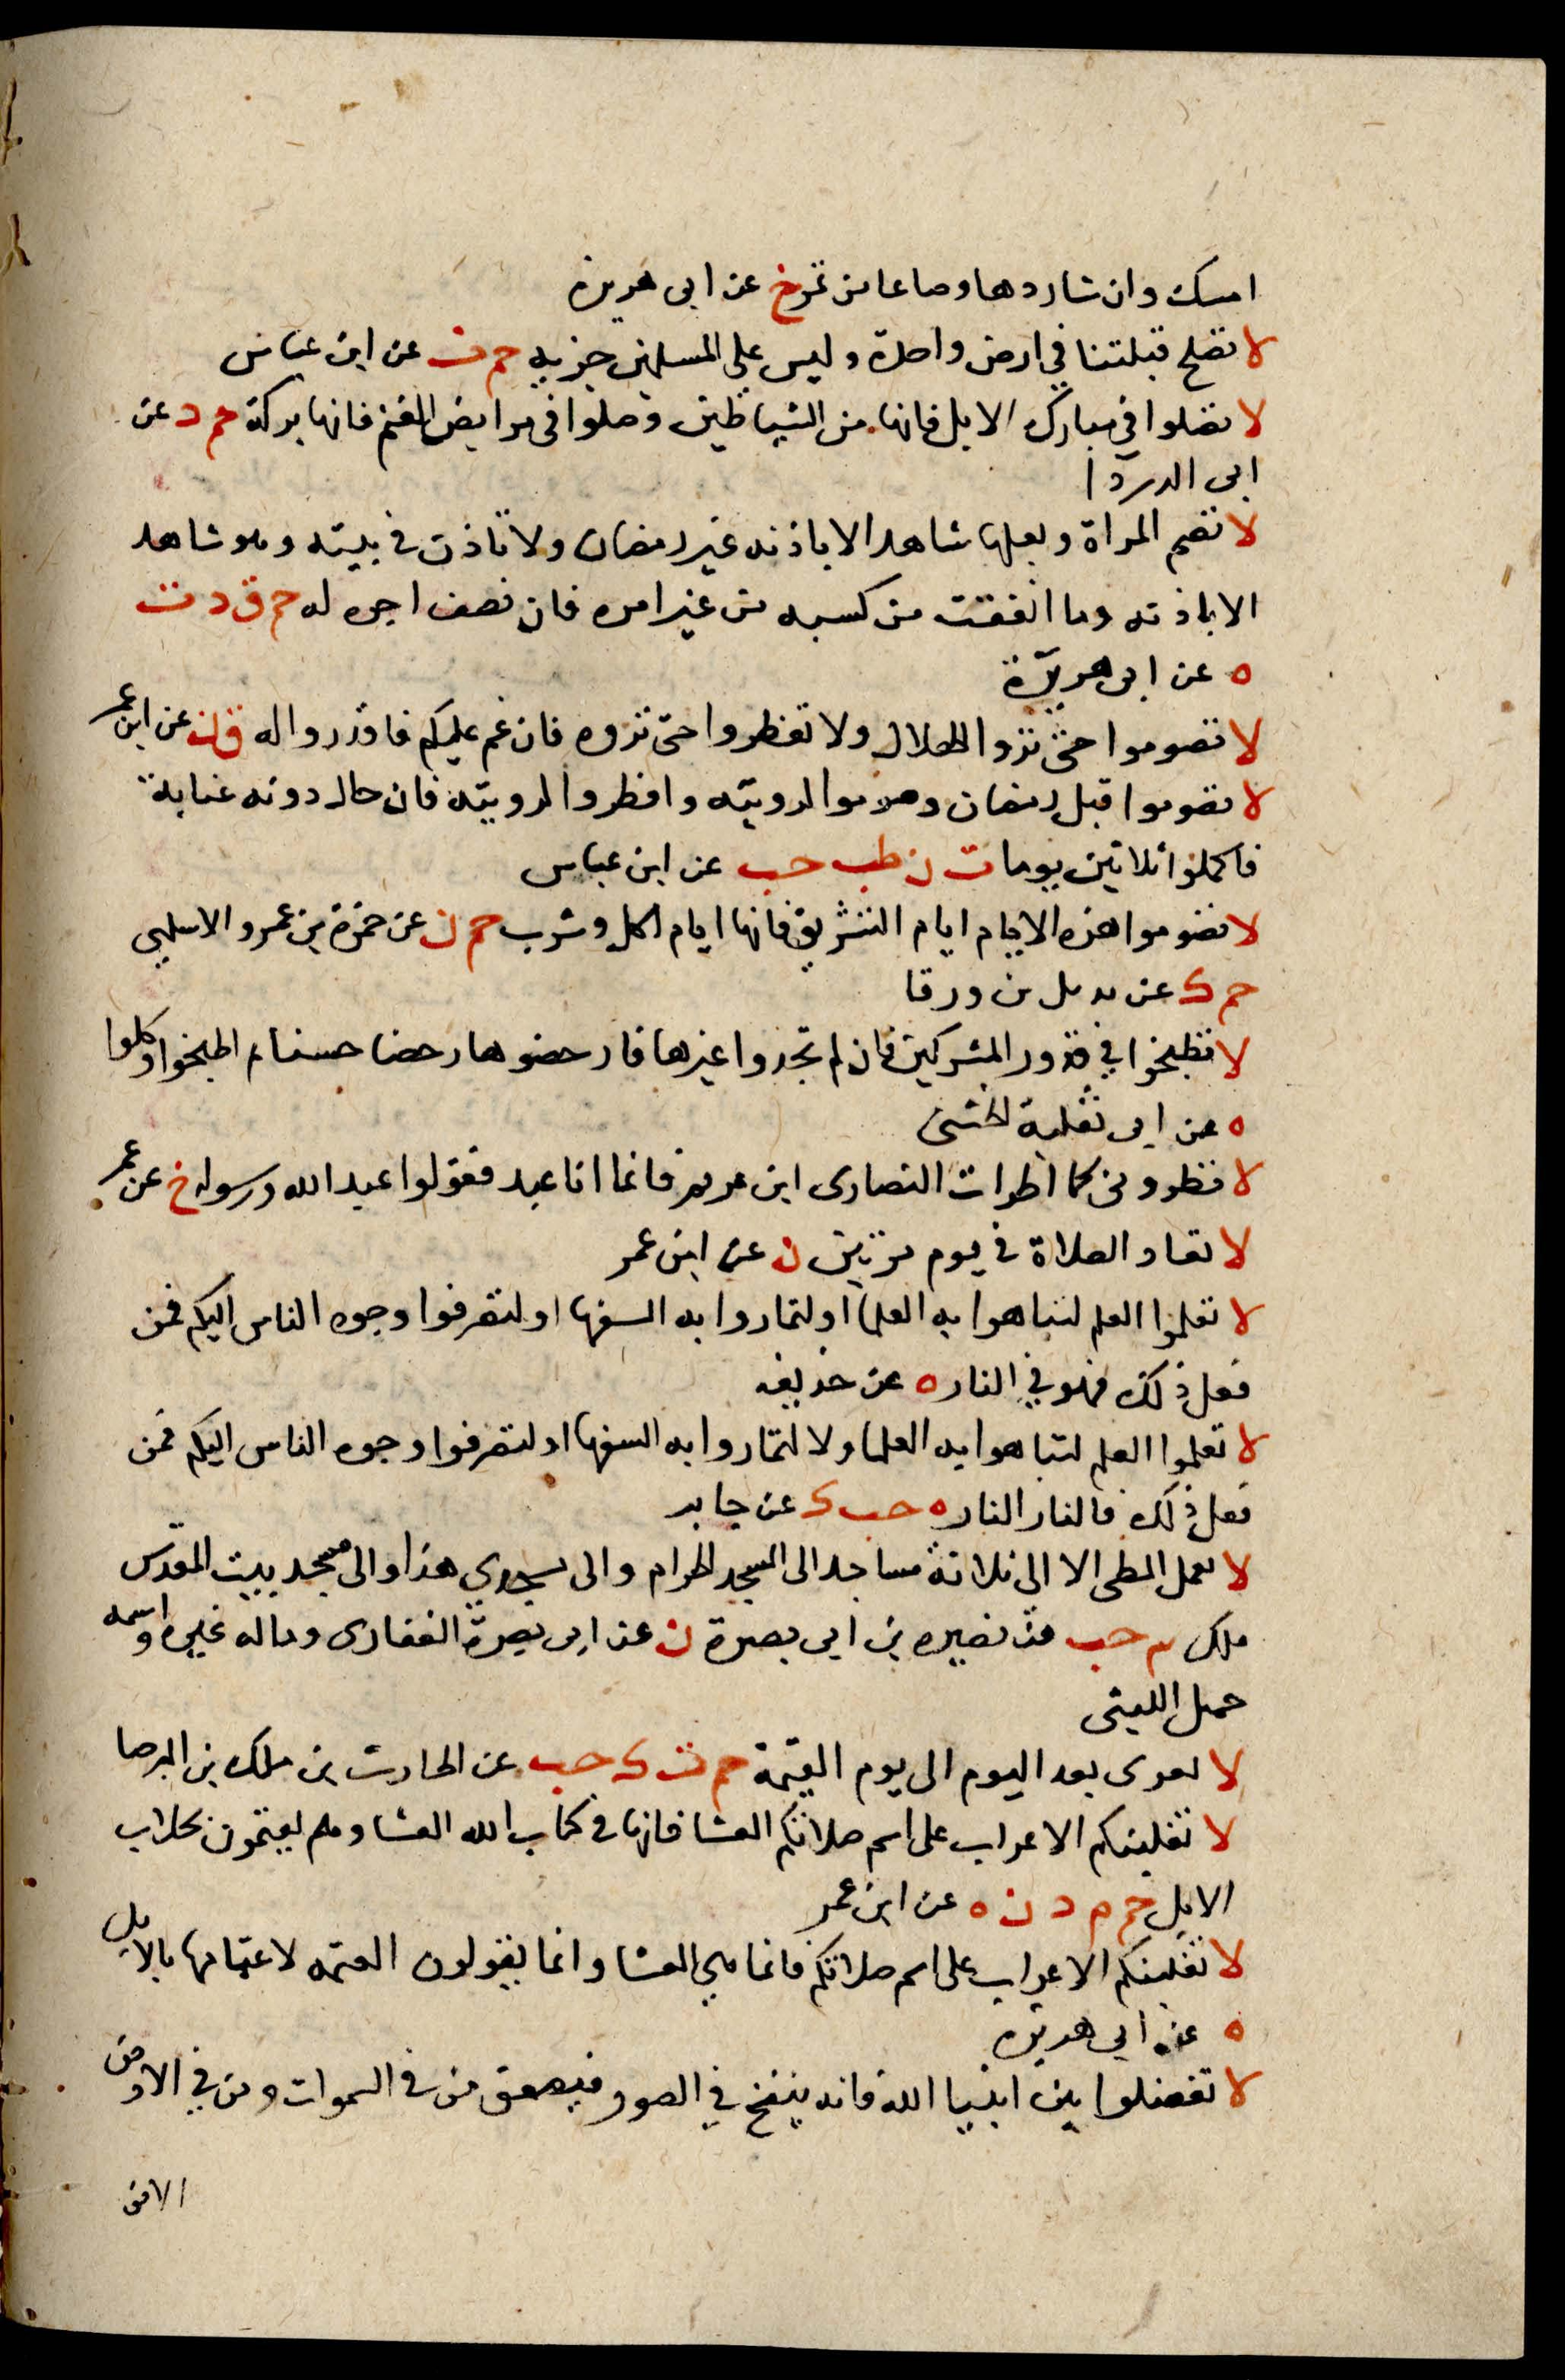 امسك وان شا ردها وصاعا من تمر خ عن ابى هريره
لا تصلح قبلتنا في ارض واحدة وليس على المسلمين جزيه حم ت عن ابن عباس
لا تصلوا في مبارك الابل فانها من الشياطين وصلوا فى مرابض الغنم فانها بركة حم د عن
ابى الدردا
لا تصم المراة وبعلها شاهد الا باذنه غير رمضان ولا تاذن في بيته وهو شاهد
الا باذنه وما انفقت من كسبه من غير امره فان نصف اجره له حم ق د ت
ه عن ابى هريرة
لا تصوموا حتى تروا الهلال ولا تفطروا حتى تروه فان غم عليكم فاقدروا له ق ن عن ابن عمر
لا تصوموا قبل رمضان وصوموا لرويته وافطروا لرويته فان حال دونه غيابة
فاكملوا ثلاثين يوما ت ن طب حب عن ابن عباس
لا تصوموا هذه الايام ايام التشريق فانها ايام اكل وشرب حم ن عن حمزة بن عمرو الاسلمي
حم ك عن بديل بن ورقا
لا تطبخوا في قدور المشركين فان لم تجدوا غيرها فارحضوها رحضا حسنا ثم اطبخوا وكلوا
ه عن ابى ثعلبة الخشنى
لا تطرونى كما اطرات النصارى ابن مريم فانما انا عبد فقولوا عبد الله ورسوله خ عن عمر
لا تعاد الصلاة في يوم مرتين ن عن ابن عمر
لا تعلموا العلم لتباهوا به العلما او لتماروا به السفها او لتصرفوا وجوه الناس اليكم فمن
فعل ذلك فهو في النار ه عن حذيفه
لا تعلموا العلم لتباهوا به العلما ولا لتماروا به السفها او لتصرفوا وجوه الناس اليكم فمن
فعل ذلك فالنار النار ه حب ك عن جابر
لا تعمل المطى الا الى ثلاثة مساجد الى المسجد الحرام والى مسجدي هذا والى مسجد بيت المقدس
ملك حب عن نضيره بن ابى بصرة ن عن ابى بصرة الغفارى وماله غيره واسمه
حميل الليثى
لا تغزى بعد اليوم الى يوم القيمة حم ت ك حب عن الحارث بن ملك بن البرصا
لا تغلبنكم الاعراب على اسم صلاتكم العشا فانها في كتاب الله العشا وهم يعتمون بحلاب
الابل حم م د ن ه عن ابن عمر
لا تغلبنكم الاعراب على اسم صلاتكم فانما هي العشا وانما يقولون العتمه لاعتمامها بالابل
ه عن ابي هريره
لا تفضلوا بين انبيا الله فانه ينفخ في الصور فيصعق من في السموات ومن في الارض